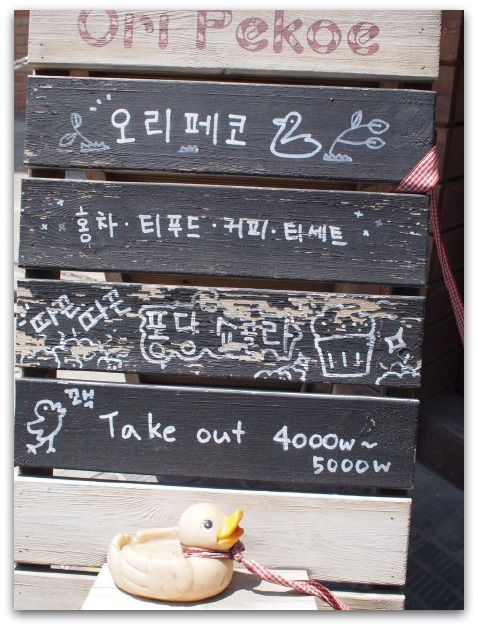 Ori Pekoe
오리페코
홍차·티푸드·커피·티세트
따끈따끈 퐁당 쇼콜라
꽥 Take out 4000w~
5000w